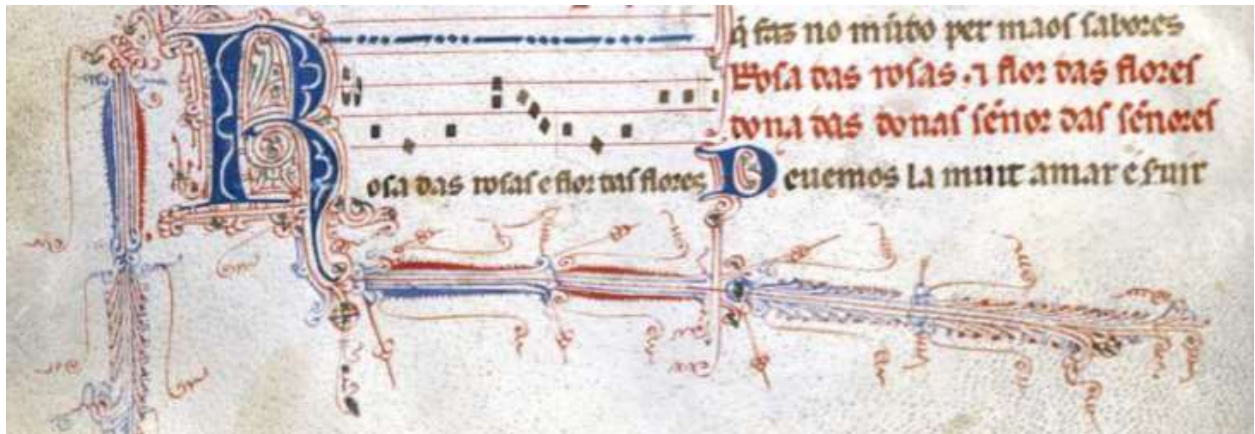 Rosa das rosas e flor das flores
q̃ faz no mũdo per maos sabores
Rosa das rosas · ⁊ flor das flores
dona das donas señor das señores
Deuemos la muit amar e ̃suir